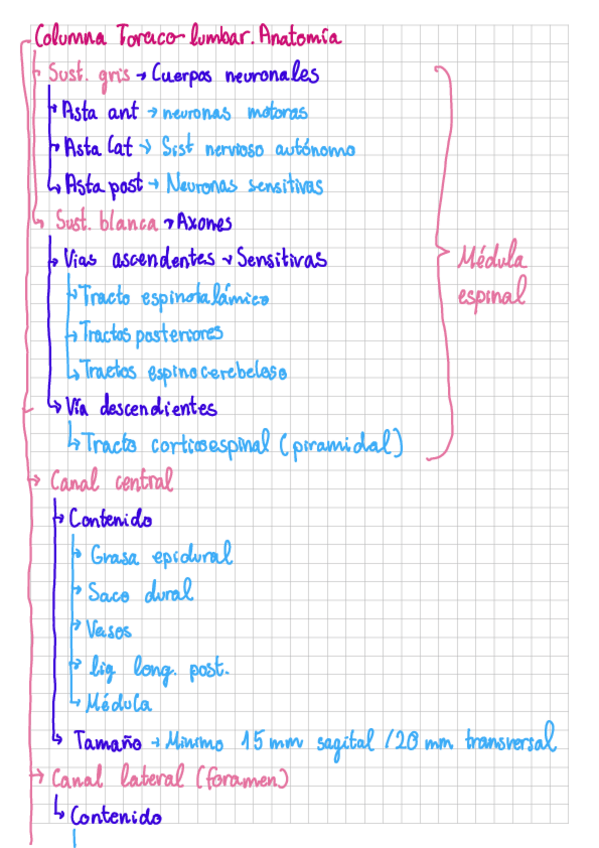 Columna Toraco-lumbar. Anatomía
Sust. gris → Cuerpos neuronales
Asta ant → neuronas motoras
Asta Lat → Sist nervioso autónomo
Asta post → Neuronas sensitivas
Sust. blanca → Axones
Vías ascendentes → Sensitivas
Médula
Tracto espinotalámico
espinal
Tractos posteriores
Tractos espinocerebeloso
Vía descendientes
Tracto corticoespinal (piramidal)
Canal central
Contenido
Grasa epidural
Saco dural
Vasos
lig long. post.
Médula
Tamaño → Mínimo 15 mm sagital / 20 mm transversal
Canal lateral (foramen)
Contenido